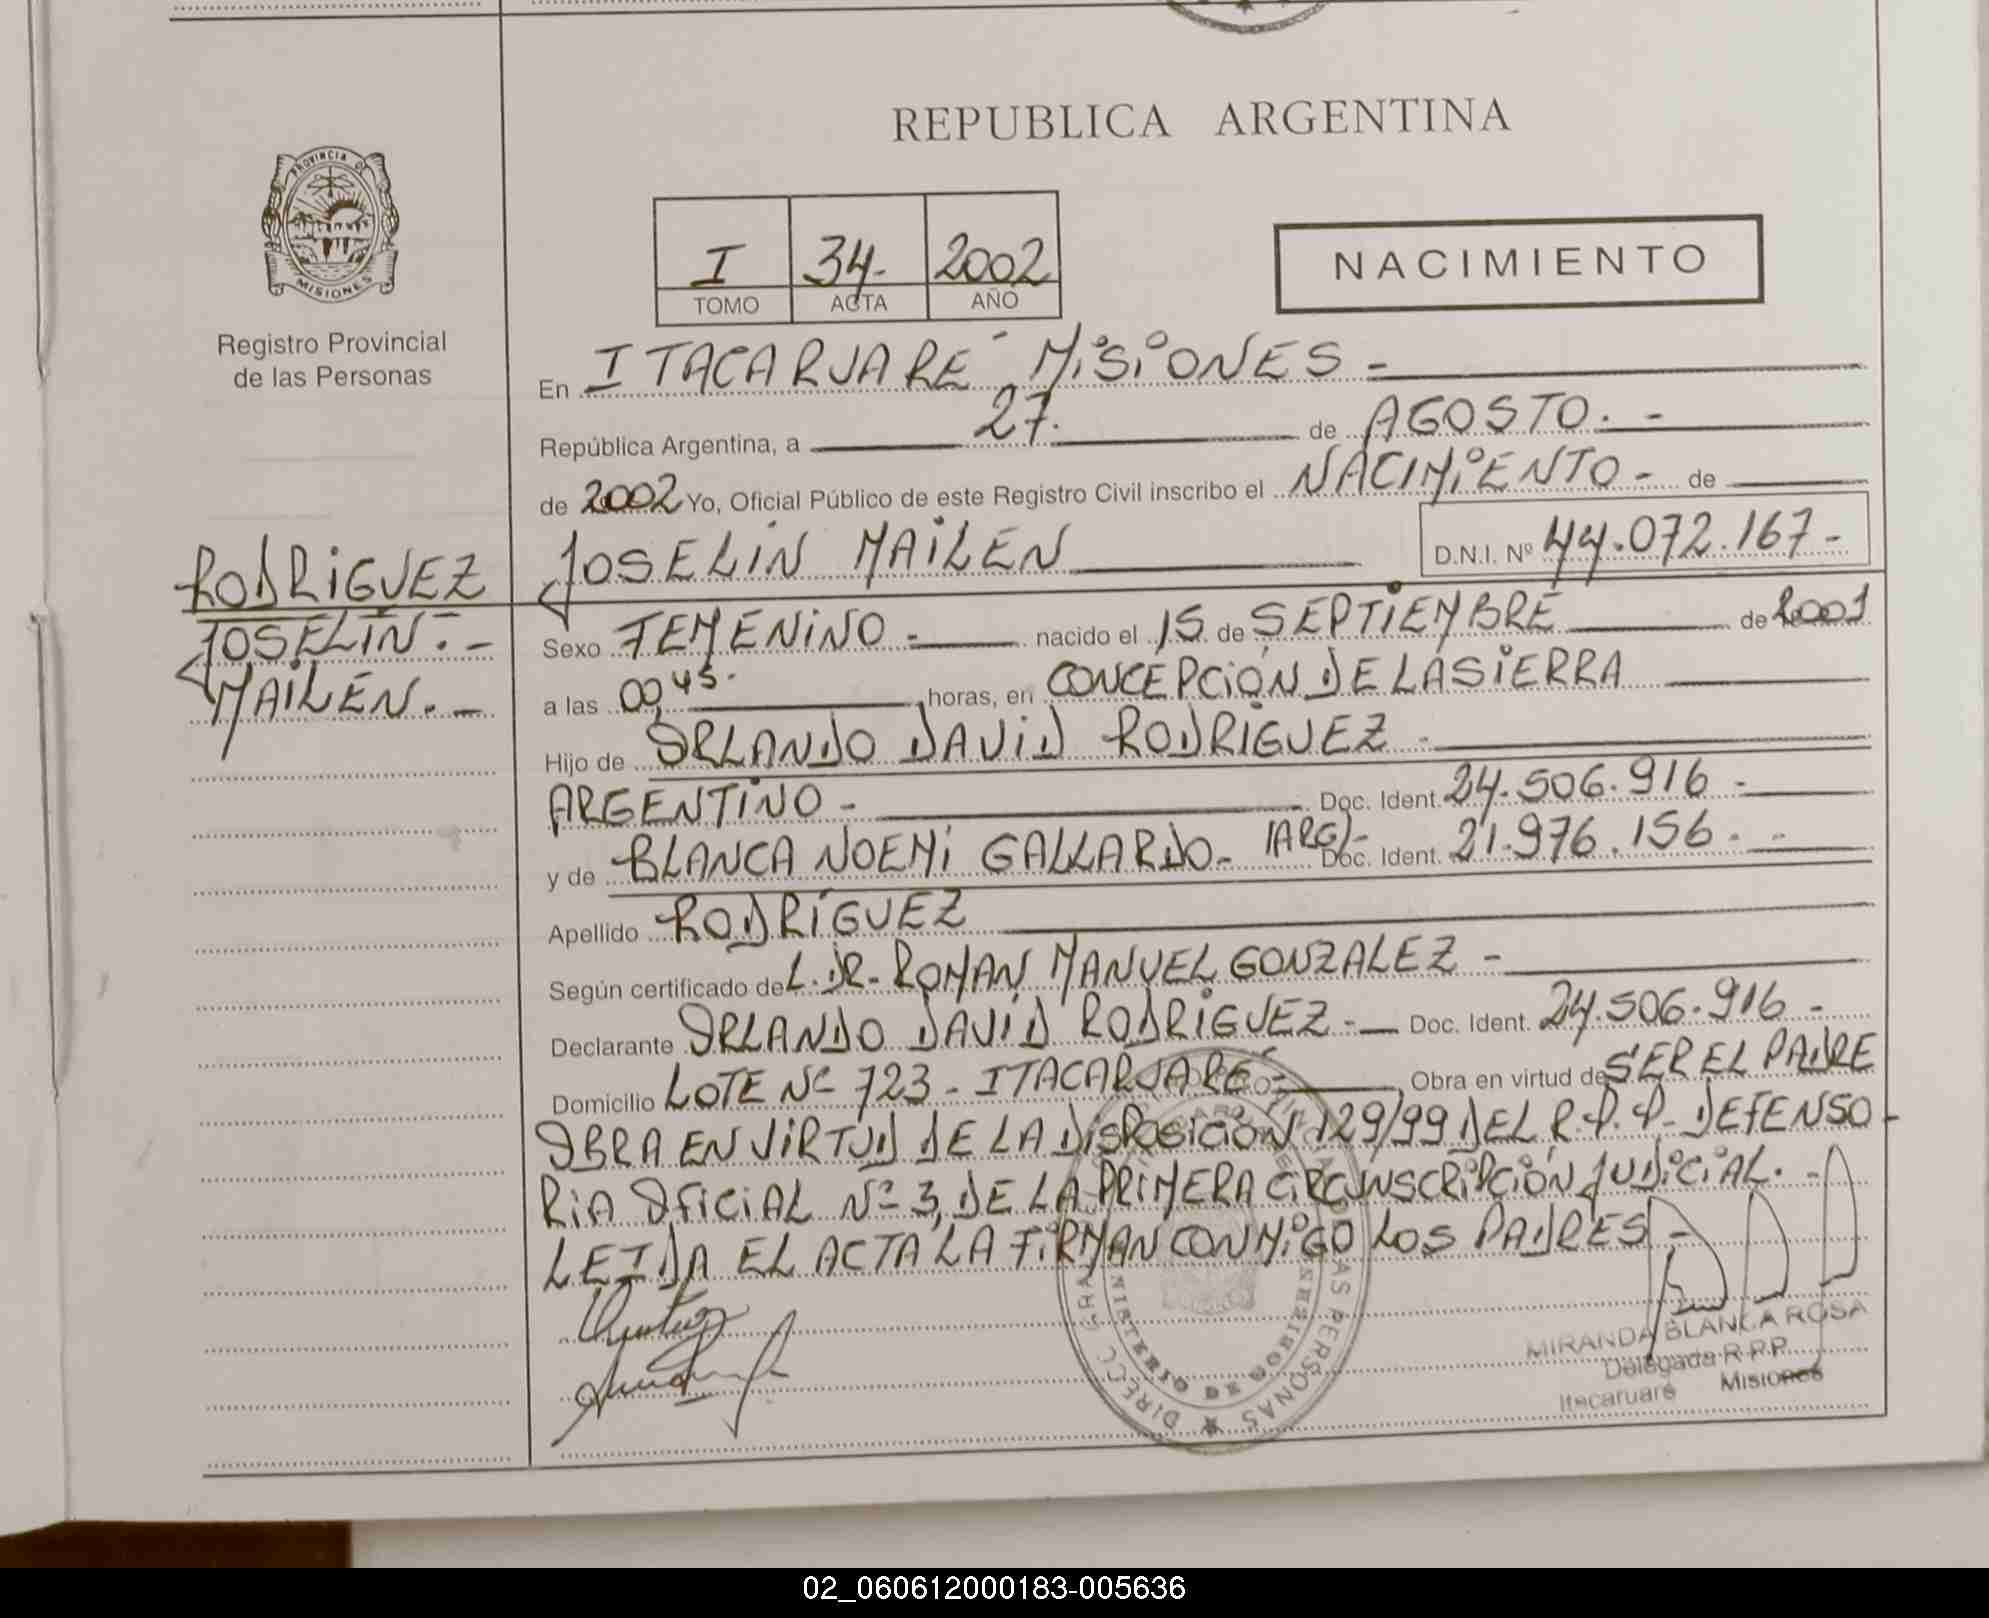 REPUBLICA ARGENTINA
PROVINCIA DE
MISIONES
Registro Provincial
de las Personas
I 34- 2002
TOMO ACTA AÑO
NACIMIENTO
En ITACARUARE MISIONES -
República Argentina, a 27. de AGOSTO. -
de 2002 Yo, Oficial Público de este Registro Civil inscribo el NACIMIENTO - de
JOSELIN MAILEN D.N.I. Nº 44.072.167-
RODRIGUEZ
JOSELIN. -
MAILEN. -
Sexo FEMENINO - nacido el 15 de SEPTIEMBRE de 2001
a las 00,45. horas, en CONCEPCIÓN DE LA SIERRA
Hijo de ORLANDO DAVID RODRIGUEZ -
ARGENTINO - Doc. Ident. 24.506.916 -
y de BLANCA NOEMI GALLARDO- (ARG)- Doc. Ident. 21.976.156. -
Apellido RODRÍGUEZ
Según certificado de L. DR- ROMAN MANUEL GONZALEZ -
Declarante ORLANDO DAVID RODRIGUEZ - Doc. Ident. 24.506.916 -
Domicilio LOTE Nº 723 - ITACARUARE - Obra en virtud de SER EL PADRE
OBRA EN VIRTUD DE LA DISPOSICIÓN 129/99 DEL R.P.P- DEFENSO-
RIA OFICIAL Nº 3, DE LA PRIMERA CIRCUNSCRIPCIÓN JUDICIAL. -
LEIDA EL ACTA LA FIRMAN CONMIGO LOS PADRES -
MIRANDA BLANCA ROSA
Delegada R.P.P.
Itacaruaré Misiones
02_060612000183-005636